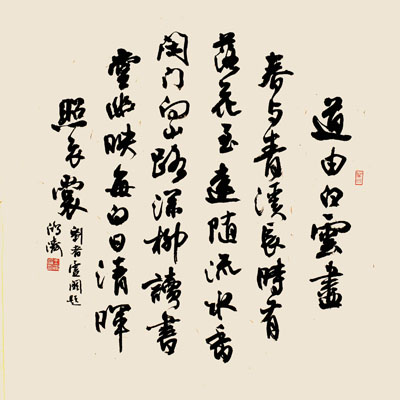 道由白雲盡
春与青溪長時有
落花至遠随流水香
闲门向山路深柳讀書
堂幽映每白日清暉
照衣裳
劉眘虛闕題